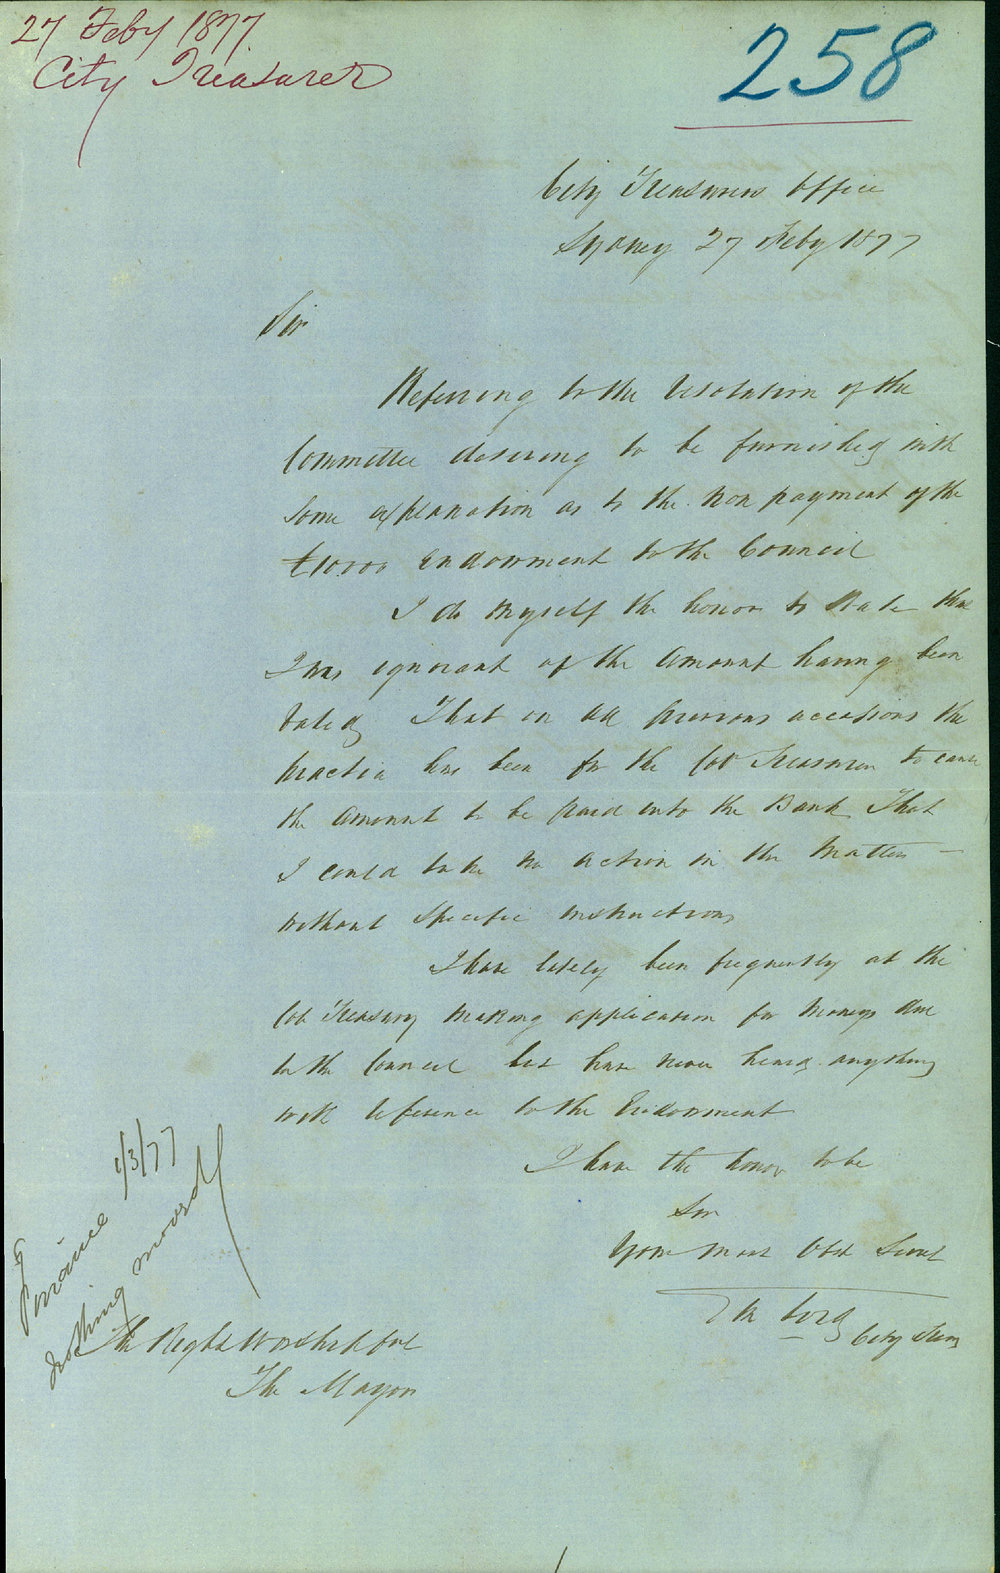 27 Feby 1877
City Treasurer
258
City Treasurers Office
Sydney 27 Feby 1877
Sir
Referring to the resolution of the
Committee desiring to be furnished with
some explanation as to the non payment of the
£10.000 Endowment to the Council
I do myself the honor to state that
I was ignorant of the amount having been
voted That on all previous occasions the
practice has been for the Col Treasurer to cause
the amount to be paid into the Bank That
I could take no action in the matter —
without specific instructions
I have lately been frequently at the
Col Treasury making application for moneys due
to the Council but have never heard anything
with reference to the Endowment
I have the honor to be
Sir
Your most Obt Servt
City Treas
The Right Worshipful
The Mayor
Finance 1/3/77
nothing